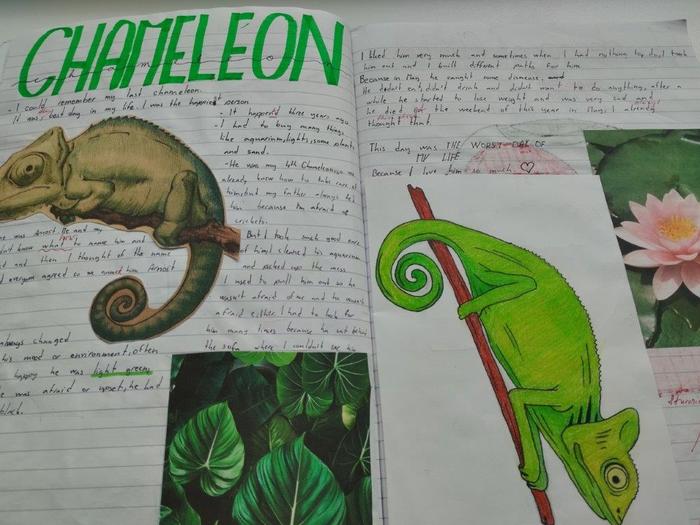 CHAMELEON
- I could remember my last chameleon.
It was best day in my life. I was the happiest person
- It happen'd three years ago
- I had to buy many things
like aquarium, lights, some plants
and sand.
- He was my 4th Chameleon so
already knew how to take care of
him, but my father always fed
him because I'm afraid of
crickets.
was Arnost. Me and my
didn't know what to name him and
and then I thought of the name
everyone agreed so we named him Arnost
But I took much good care
of him. I cleaned his aquarium
and picked up the mess
I used to pull him out so he
wasn't afraid of me and to
afraid either. I had to look for
him many times because he sat behind
the sofa where I couldn't see him
always changed
his mood or environment, often
happy he was light green,
he was afraid or upset, he had
black.
I liked him very much and sometimes when I had nything to do, I took
him out and I built different paths for him
Because in May he caught some disease,
He didn't eat, didn't drink and didn't want to do anything, after a
while he started to lose weight and was very sad and
he died the weekend of this year in May, I already
thought that.
This day was THE WORST DAY OF
MY LIFE
Because I love him so much ♡